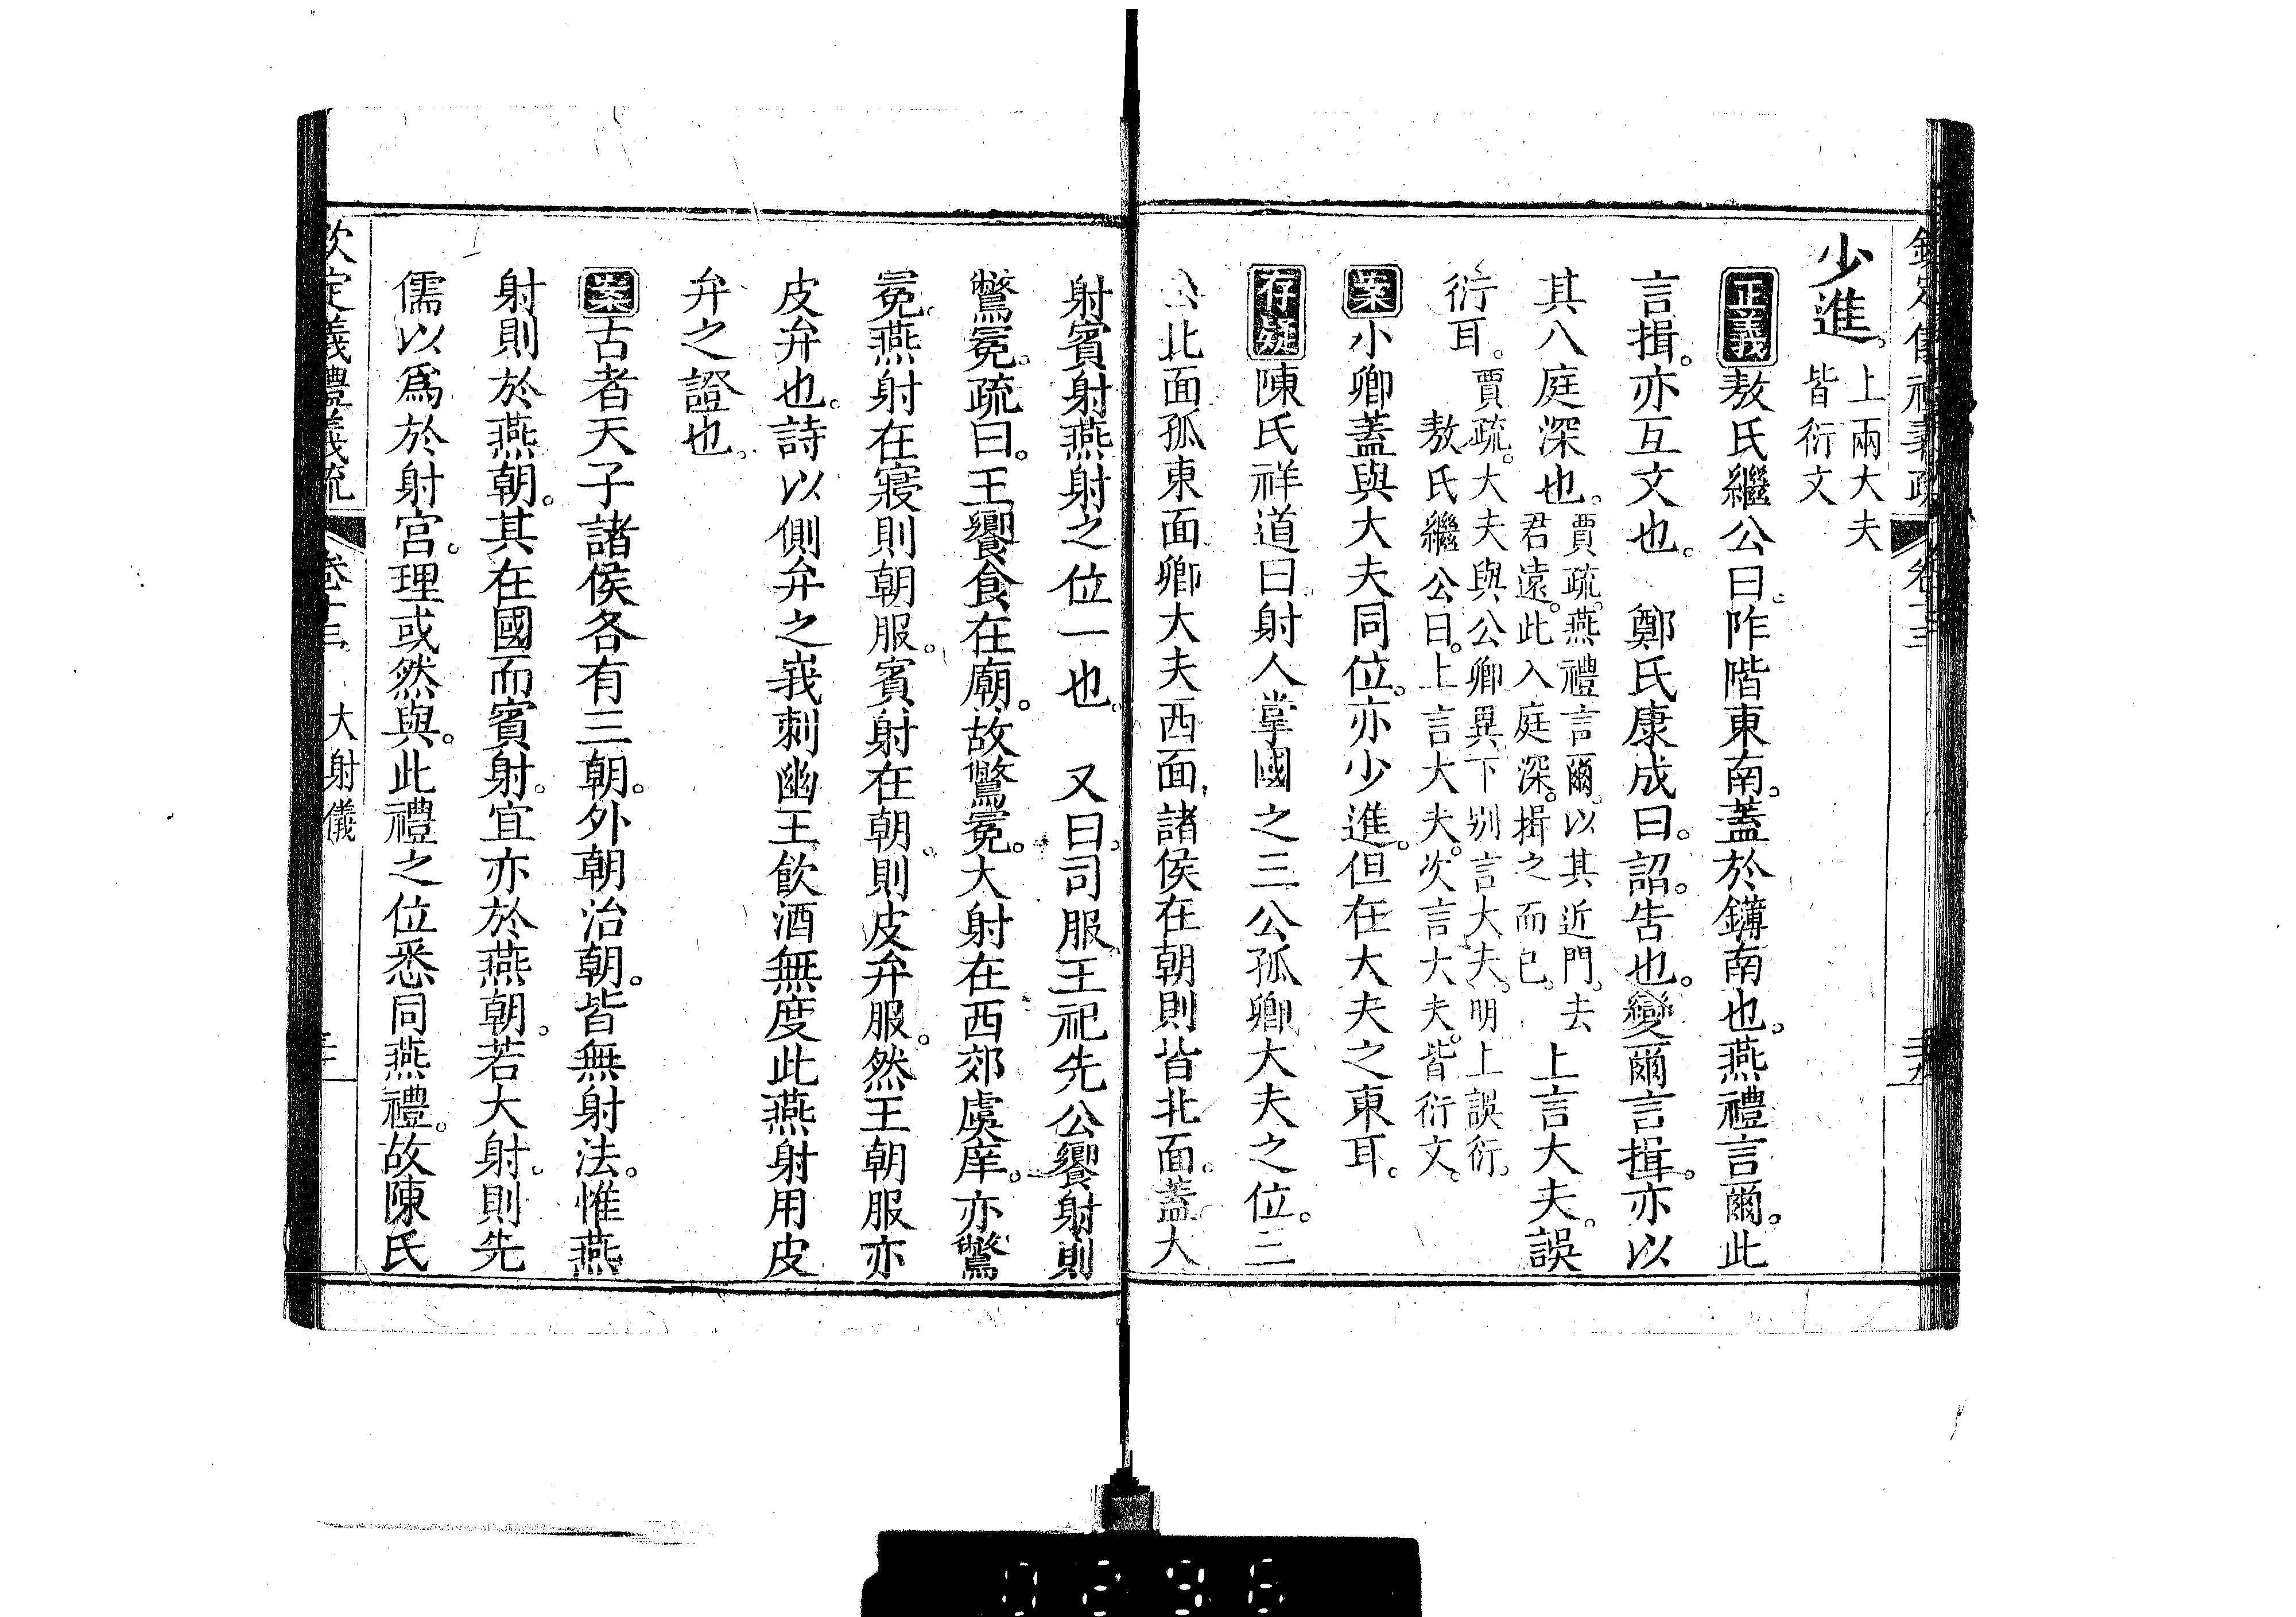 欽定儀禮義疏 卷十三
少進。上兩大夫
皆衍文
正義敖氏繼公曰。阼階東南。蓋於鑮南也。燕禮言爾。此
言揖。亦互文也。 鄭氏康成曰。詔。告也。變爾言揖。亦以
其入庭深也。賈疏。燕禮言爾。以其近門。去
君遠。此入庭深。揖之而已。 上言大夫。誤
衍耳。賈疏。大夫與公卿異。下別言大夫。明上誤衍。
敖氏繼公曰。上言大夫。次言大夫。皆衍文。
案小卿蓋與大夫同位。亦少進。但在大夫之東耳。
存疑陳氏祥道曰。射人掌國之三公孤卿大夫之位。三
公北面孤東面卿大夫西面。諸侯在朝則皆北面。蓋大
射賓射燕射之位一也。 又曰。司服。王祀先公饗射則
鷩冕。疏曰。王饗食在廟。故鷩冕。大射在西郊虞庠。亦鷩
冕。燕射在寢則朝服。賓射在朝。則皮弁服。然王朝服亦
皮弁也。詩以側弁之峩刺幽王飲酒無度此燕射用皮
弁之證也。
案古者天子諸侯各有三朝。外朝治朝。皆無射法。惟燕
射則於燕朝。其在國而賓射。宜亦於燕朝。若大射。則先
儒以爲於射宮。理或然與。此禮之位悉同燕禮。故陳氏
欽定義禮義疏 卷十三 大射儀
0296